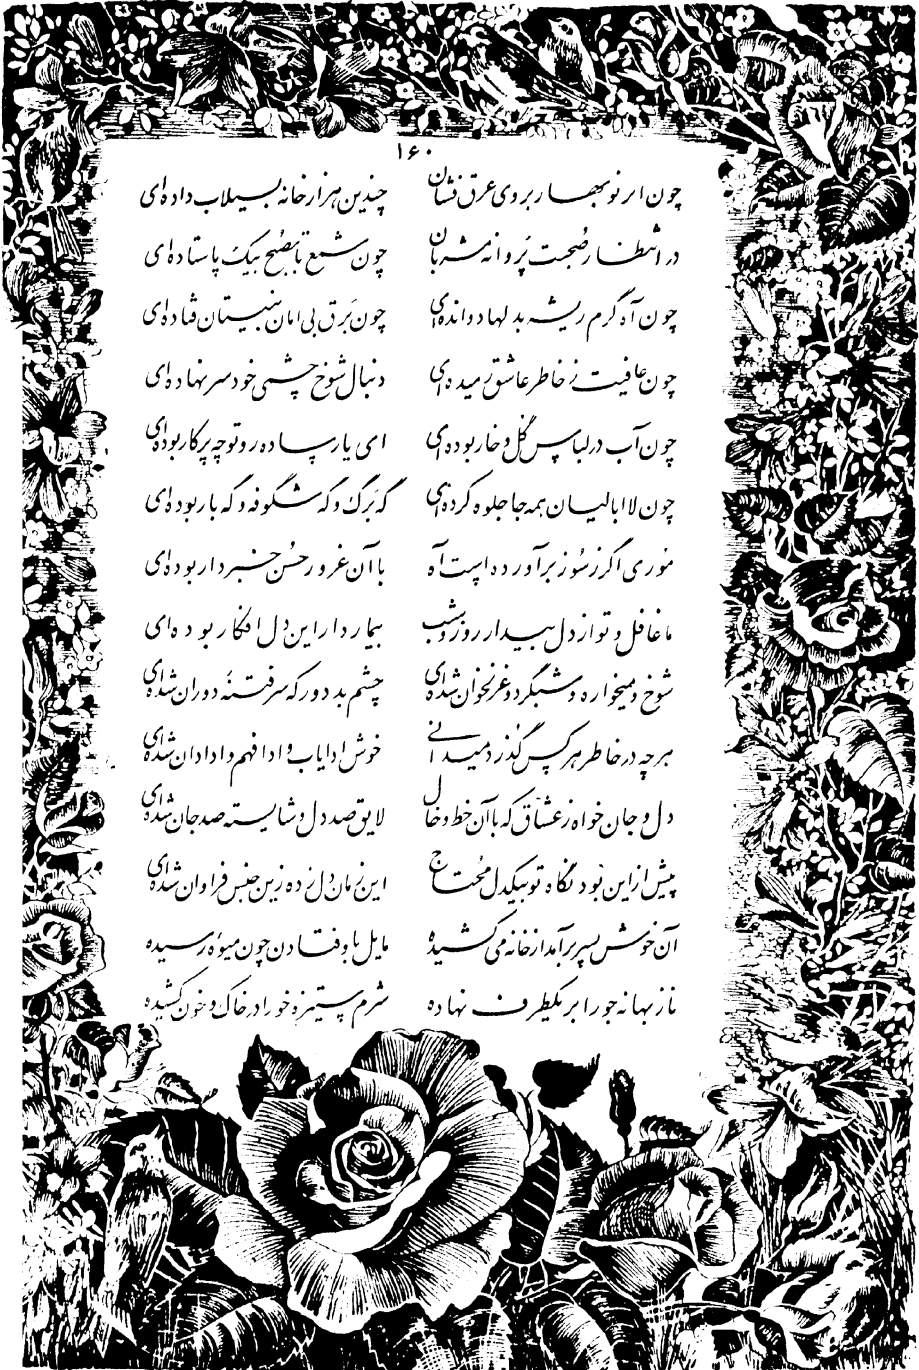 ۱۶۰
چون ابر نوبهار بروی عرق فشان چندین هزار خانه بسیلاب داده‌ای
در انتظار صحبت پروانه مشربان چون شمع تا بصبح بیک پا ستاده‌ای
چون آه گرم ریشه بدلها دوانده‌ای چون برق بی امان بنیستان فتاده‌ای
چون عافیت ز خاطر عاشق رمیده‌ای دنبال شوخ چشمی خود سر نهاده‌ای
چون آب در لباس گل و خار بوده‌ای ای یار ساده رو تو چه پرکار بوده‌ای
چون لاابالیان همه جا جلوه کرده‌ای گه برگ و گه شگوفه و گه بار بوده‌ای
موری اگر ز سوز برآورده است آه با آن غرور حسن خبردار بوده‌ای
ما غافل و تو از دل بیدار روز و شب بیمار دار این دل افکار بوده‌ای
شوخ و میخواره و شبگرد و غزلخوان شده‌ای چشم بد دور که سرفتنهٔ دوران شده‌ای
هر چه در خاطر هر کس گذرد میدانی خوش ادایاب و ادا فهم و ادادان شده‌ای
دل و جان خواه ز عشاق که با آن خط و خال لایق صد دل و شایسته صد جان شده‌ای
پیش ازین بود نگاه تو بیکدل محتاج این زمان دل زده زین جنس فراوان شده‌ای
آن خوش پسر برآمد از خانه می کشیده مایل باوفتادن چون میوهٔ رسیده
ناز بهانه جو را بر یکطرف نهاده شرم ستیزه خو را در خاک و خون کشیده